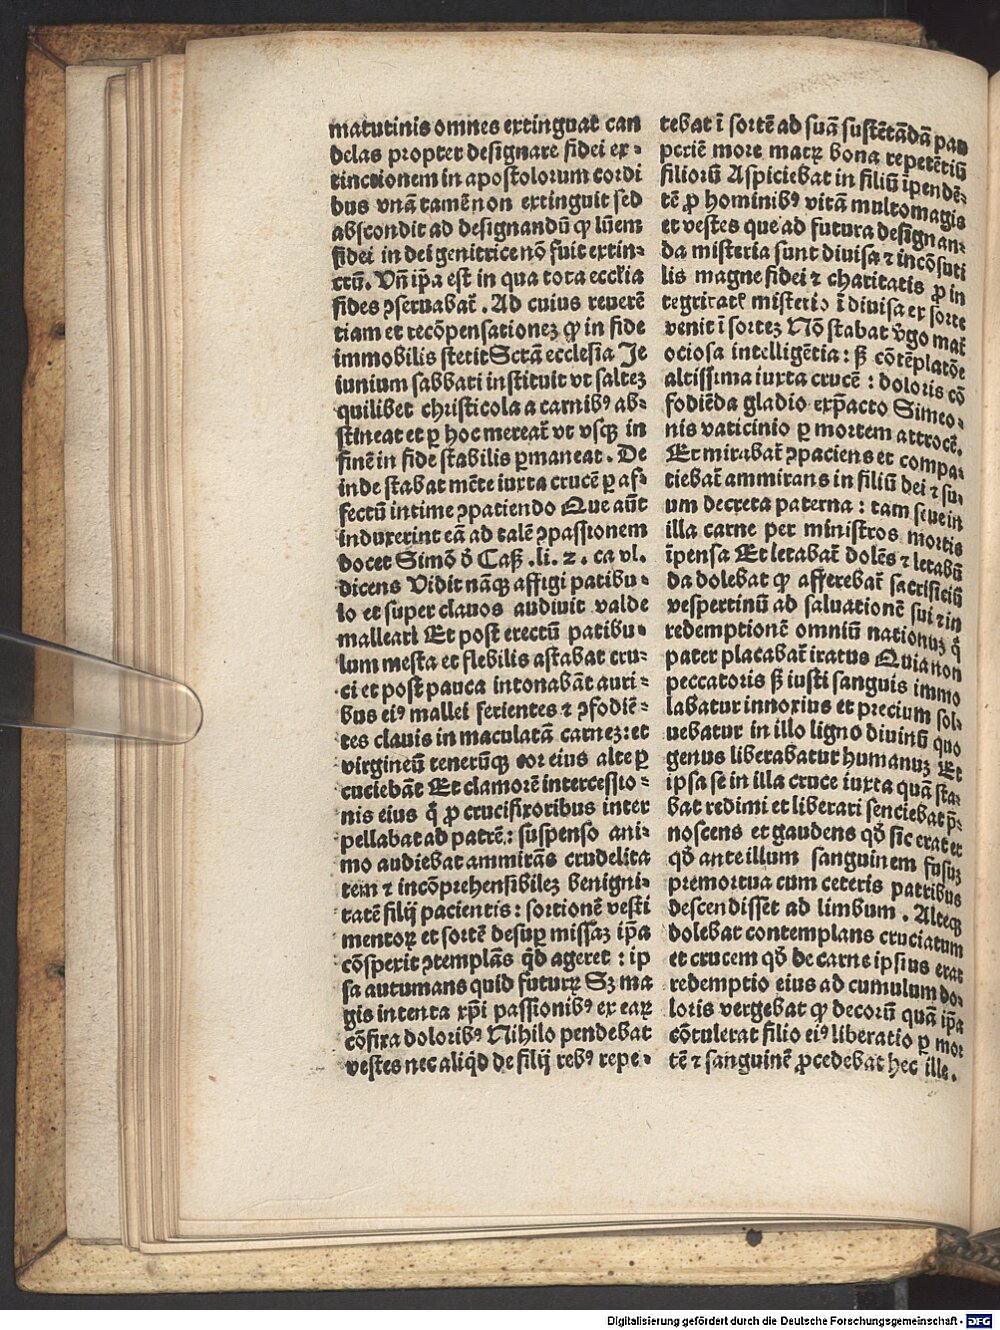 matutinis omnes extinguat can
delas propter designare fidei ex-
tinctionem in apostolorum cordi
bus vnā tamē non extinguit sed
abscondit ad designandū ꝙ lūem
fidei in dei genitrice nō fuit extin-
ctū. Vn̄ ip̄a est in qua tota eccl'ia
fides ꝯseruabat᷑. Ad cuius reuerē
tiam et recōpensationeꝫ ꝙ in fide
immobilis stetit Sctā ecclesia Je
iunium sabbati instituit vt salteꝫ
quilibet christicola a carnibꝰ ab-
stineat et ꝑ hoc mereat᷑ vt vsqꝫ in
finē in fide stabilis ꝑmaneat. De
inde stabat mēte iuxta crucē ꝑ af-
fectū intime ꝯpatiendo Que aūt
induxerint eā ad talē ꝯpassionem
docet Simō ð Caẜ .li. 2. ca vl.
dicens Vidit nāqꝫ affigi patibu-
lo et super clauos audiuit valde
malleari Et post erectū patibu-
lum mesta et flebilis astabat cru-
ci et post pauca intonabāt auri-
bus eiꝰ mallei ferientes ⁊ ꝯfodiē-
tes clauis in maculatā carneꝫ: et
virgineū tenerūqꝫ cor eius alte ꝑ
cuciebāt Et clamorē intercessio-
nis eius q̄ ꝓ crucifixoribus inter
pellabat ad patrē: suspenso ani-
mo audiebat ammirās crudelita
tem ⁊ incōprehensibileꝫ benigni-
tatē filij pacientis: sortionē vesti
mentoꝝ et sortē desuꝑ missaꝫ ip̄a
cōsperit ꝯtemplās qd̄ ageret: ip
sa autumans quid futurꝝ Sꝫ ma
gis intenta xp̄i passionibꝰ ex eaꝝ
cōfixa doloribꝰ Nihilo pendebat
vestes nec aliq̄d de filij rebꝰ repe-
tebat ī sortē ad suā sustētādā pau
periē more matꝝ bona repetētiū
filiorū Aspiciebat in filiū īpendē-
tē ꝓ hominibꝰ vitā multomagis
et vestes que ad futura designan-
da misteria sunt diuisa ⁊ incōsuti
lis magne fidei ⁊ charitatis ꝓ in
tegritate misterio īdiuisa ex sorte
venit ī sorteꝫ Nō stabat v̄go mat᷑
ociosa intelligētia: ẜ cōtēplatōe
altissima iuxta crucē: doloris cō
fodiēda gladio exp̄acto Simeo-
nis vaticinio ꝑ mortem attrocē.
Et mirabat᷑ ꝯpaciens et compa-
tiebat᷑ ammirans in filiū dei ⁊ su-
um decreta paterna: tam seue in
illa carne per ministros mortis
īpensa Et letabat᷑ dolēs ⁊ letabū
da dolebat ꝙ afferebat᷑ sacrificiū
vespertinū ad saluationē sui ⁊ in
redemptionē omniū nationuꝫ q̄
pater placabat᷑ iratus Quia non
peccatoris ẜ iusti sanguis immo
labatur innoxius et precium sol-
uebatur in illo ligno diuinū quo
genus liberabatur humanuꝫ Et
ipsa se in illa cruce iuxta quā sta-
bat redimi et liberari senciebat p̄-
noscens et gaudens qd̄ sic erat et
qd̄ ante illum sanguinem fusuꝫ
premortua cum ceteris patribus
descendisset ad limbum. Alteqꝫ
dolebat contemplans cruciatum
et crucem qd̄ de carne ipsius erat
redemptio eius ad cumulum do-
loris vergebat ꝙ decorū quā ip̄a
cōtulerat filio eiꝰ liberatio ꝑ mor
tē ⁊ sanguinē ꝓcedebat hec ille.
Digitalisierung gefördert durch die Deutsche Forschungsgemeinschaft - DFG